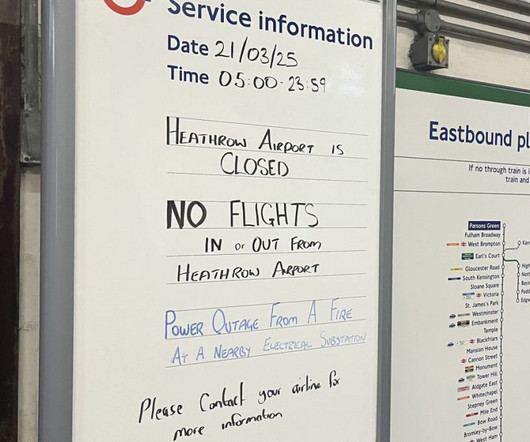 Service information
Date 21/03/25
Time 05:00-23:59
HEATHROW AIRPORT IS
CLOSED
NO FLIGHTS
IN or OUT FROM
HEATHROW AIRPORT
POWER OUTAGE FROM A FIRE
AT A NEARBY ELECTRICAL SUBSTATION
Please Contact your airline for
more information
Eastbound pl
If no through train is i
train and
Parsons Green
Fulham Broadway
West Brompton
Earl's Court
Gloucester Road
South Kensington
Sloane Square
Victoria
St. James's Park
Westminster
Embankment
Temple
Blackfriars
Mansion House
Cannon Street
Monument
Tower Hill
Aldgate East
Whitechapel
Stepney Green
Mile End
Bow Road
Bromley-by-Bow
West Ham